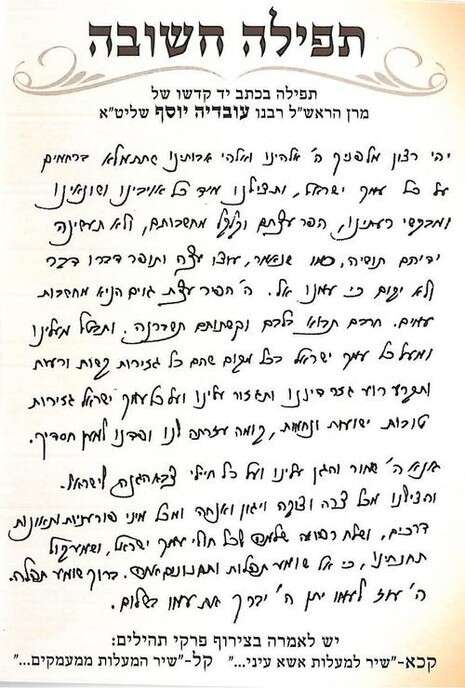 תפילה חשובה
תפילה בכתב יד קדשו של
מרן הראש"ל רבנו עובדיה יוסף שליט"א
יהי רצון מלפניך ה' אלהינו ואלהי אבותינו שתתמלא ברחמים
על כל עמך ישראל, ותצילנו מיד כל אויבינו ושונאינו
ומבקשי רעתינו, הפר עצתם וקלקל מחשבותם, ולא תעשינה
ידיהם תושיה, כמו שנאמר, עוצו עצה ותופר דברו דבר
ולא יקום כי עמנו אל. ה' הפיר עצת גוים הניא מחשבות
עמים. חרבם תבוא בלבם וקשתותם תשברנה. ותבטל מעלינו
ומעל כל עמך ישראל בכל מקום שהם כל גזירות קשות ורעות
ותקרע רוע גזר דיננו ותגזור עלינו ועל כל עמך ישראל גזירות
טובות ישועות ונחמות, קומה עזרתה לנו ופדנו למען חסדיך.
אנא ה' שמור והגן עלינו ועל כל חיילי צבא הגנה לישראל.
והצילנו מכל צרה וצוקה ויגון ואנחה ומכל מיני פורעניות ותאונות
דרכים, ושלח רפואה שלמה לכל חולי עמך ישראל, ושמע קול
תחנתינו, כי אל שומע תפלות ותחנונים אתה. ברוך שומע תפלה.
ה' עוז לעמו יתן ה' יברך את עמו בשלום.
יש לאמרה בצירוף פרקי תהילים:
קכא-"שיר למעלות אשא עיני..." קל-"שיר המעלות ממעמקים..."